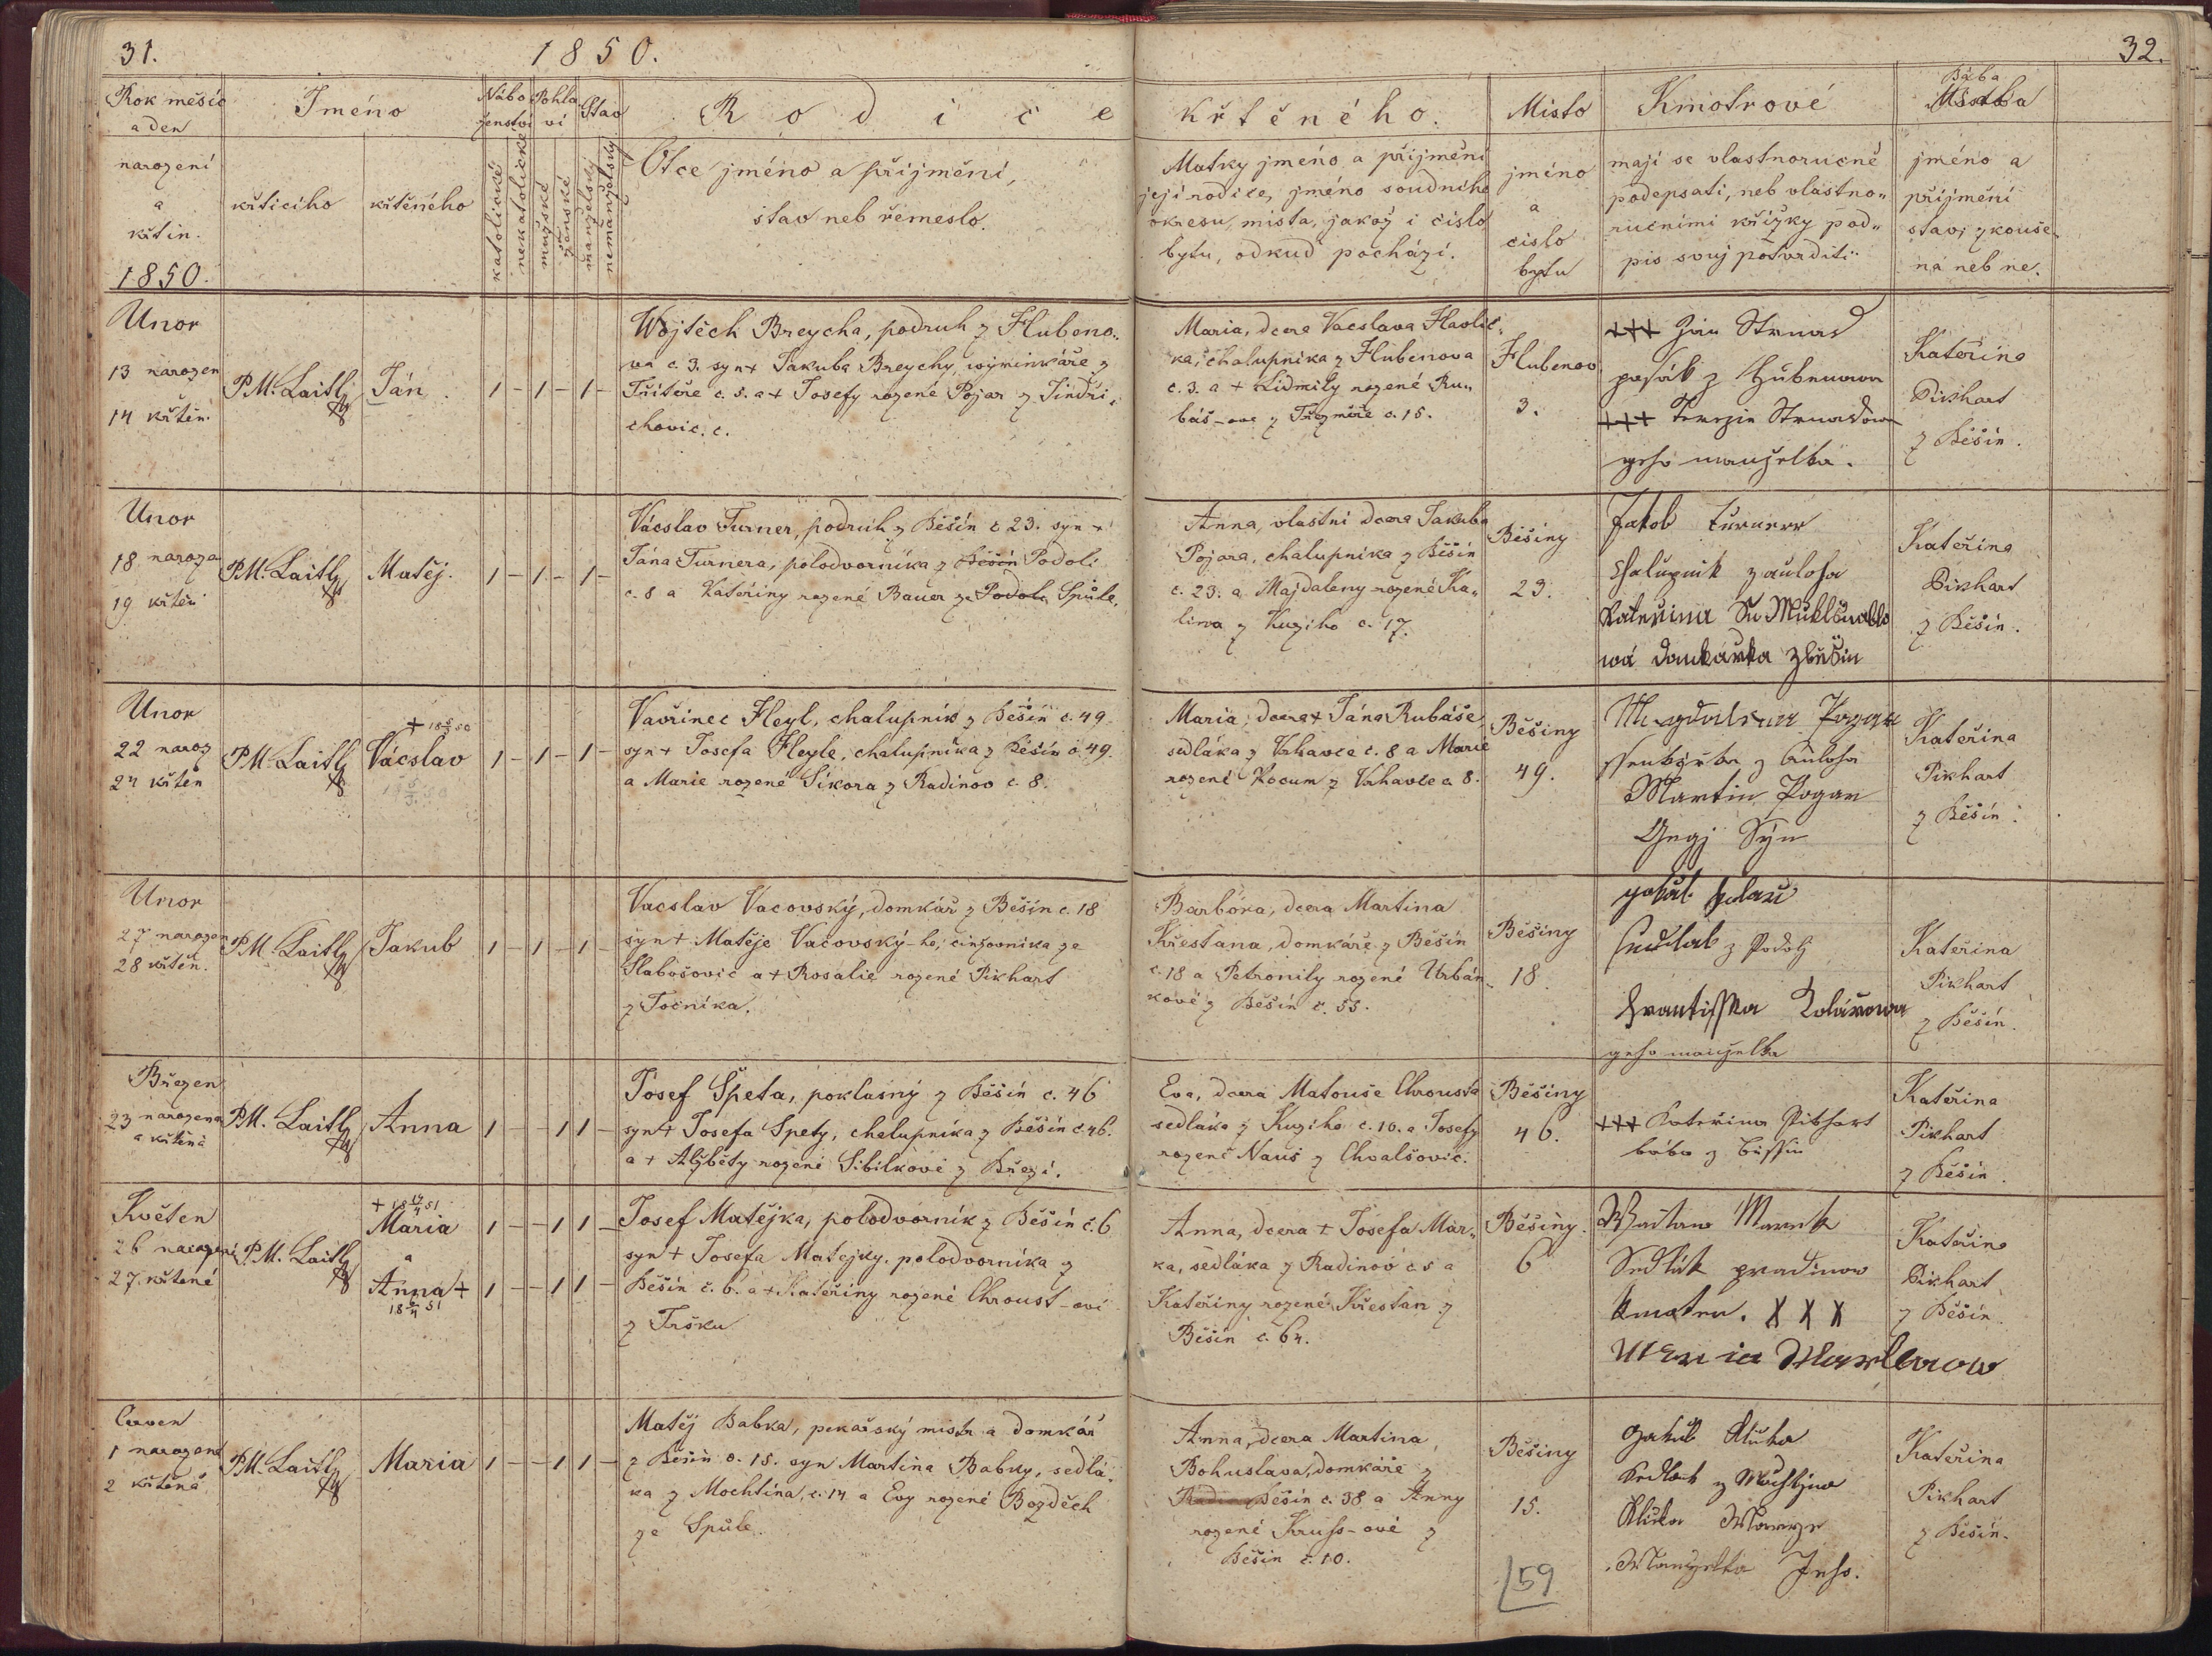 31.
1850.
32.
Rok měsíc
a den
narození
a
křtin.
1850.
Jméno
křticího
křtěného
Nábo
ženství
katolické
nekatolické
Pohla
ví
mužské
ženské
Stav
manželský
nemanželský
Rodiče
Otce jméno a příjmění,
stav neb řemeslo.
křtěného.
Matky jméno a příjmění
její rodiče, jméno soudního
okresu, místa, jakož i číslo
bytu, odkud pochází.
Místo
jméno
a
číslo
bytu
Kmotrové
mají se vlastnoručně
podepsati, neb vlastno„
ručními křížky pod„
pis svůj potvrditi.
Bába
jméno a
příjmění
stav, zkouše„
ná neb ne.
Unor
13 narozen
14 křtěn.
P.M. Laitl
Ján
1 - 1 - 1 -
Wojtěch Breycha, podruh z Hlubeno„
va č. 3. syn + Jakuba Breychy, výminkáře z
Třitěře č. 5. a + Josefy rozené Pojar z Jindři„
chovic. č.
Maria, dcera Vacslava Havlič„
ka, chalupníka z Hlubenova
č. 3. a + Lidmily rozené Ru„
báš-ove z č. 15.
Hlubenov
3.
+++ Jan Strnad
pasák z Hubenowa
+++ Terezie Strnadowa
geho manželka.
Kateřina
Pikhart
z Běšin.
Unor
18 naroze
19 křtěn
P.M. Laitl
Matěj.
1 - 1 - 1 -
Václav Turner, podruh z Běšín č 23. syn +
Jána Turnera, polodvorníka z Běšín Podolí
č. 8 a Kateřiny rozené Bauer ze Podolí Spůle.
Anna, vlastní dcera Jakuba
Pojara, chalupníka z Běšín
č. 23. a Majdaleny rozené Ka„
lina z Kuziho č. 17.
Běšiny
23.
Jakob Turnerr
Chalupnik
Kateřina
wá domkářka z běšin
Kateřina
Pikhart
z Běšin.
Unor
22 naroz
24 křtěn
P.M. Laitl
Vácslav
1 - 1 - 1 -
Vavřinec Heyl, chalupník z Běšín č. 49.
syn + Josefa Heyle, chalupníka z Běšín č 49.
a Marie rozené Síkora z Radinov č. 8.
Maria, dcera + Jána Rubáše,
sedláka z Vrhavče č. 8 a Marie
rozené Kocum z Vrhavče č 8.
Běšiny
49.
Magdalena Pogar
Martin Pogar
Gegj Sýn
Kateřina
Pikhart
z Běšin.
Unor
27 narozen
28 křtěn.
P.M. Laitl
Jakub
1 - 1 - 1 -
Vacslav Vacovský, domkář z Běšín č. 18
syn + Matěje Vacovský-ho, činžovníka ze
Slabošovic a + Rosalie rozené Pikhart
z Točníka.
Barbóra, dcera Martina
Křesťana, domkáře z Běšín
č. 18 a Petronily rozené Urbán„
kové z Běšín č. 55.
Běšiny
18.
Sedlak z Podolj
Frantisska Kolárowa
geho manželka
Kateřina
Pikhart
z Běšín.
Březen
23 narozena
a křtěná
P.M. Laitl
Anna
1 - - 1 1 -
Josef Špeta, poklasný z Běšín č. 46
syn + Josefa Spety, chalupníka z Běšín č 46.
a + Alžběty rozené Sibilkové z Březí.
Eva, dcera Matouše Chrousta
sedláka z Kuziho č. 10. a Josefy
rozené Nauš z Chvalšovic.
Běšiny
46.
+++ Kateřina Pikhart
bába z Běssin
Kateřina
Pikhart
z Běšín.
Květen
26 narozené
27. křtěné
P.M. Laitl
Maria
a
Anna +
1 - - 1 1 -
1 - - 1 1 -
Josef Matějka, polodvorník z Běšín č. 6
syn + Josefa Matejky, polodvorníka z
Běšín č. 6. a + Kateřiny rozené Chroust-ové
z Tršku
Anna, dcera + Josefa Mar„
ka, sedláka z Radinov č 5 a
Kateřiny rozené Křestan z
Běšín č. 64.
Běšiny.
6
Marek
Sedlák zradinow
Kmotra. X X X
Kateřina
Pikhart
z Běšín.
Červen
1 narozená
2 křtěná
P.M. Laitl
Maria
1 - - 1 1 -
Matěj Babka, pekařský mistr a domkář
z Běšin č. 15. syn Martina Babky, sedlá„
ka z Mochtína, č. 14 a Evy rozené Bozděch
ze Spůle.
Anna, dcera Martina
Bohuslava, domkáře z
Běšín č. 38 a Anny
rozené Kruss-ové z
Běšin č. 10.
Běšiny
15.
59
Jakub Kluka
Sedlak z Mochtjna
Kluka
Manzelka Jeho.
Kateřina
Pikhart
z Běšín.